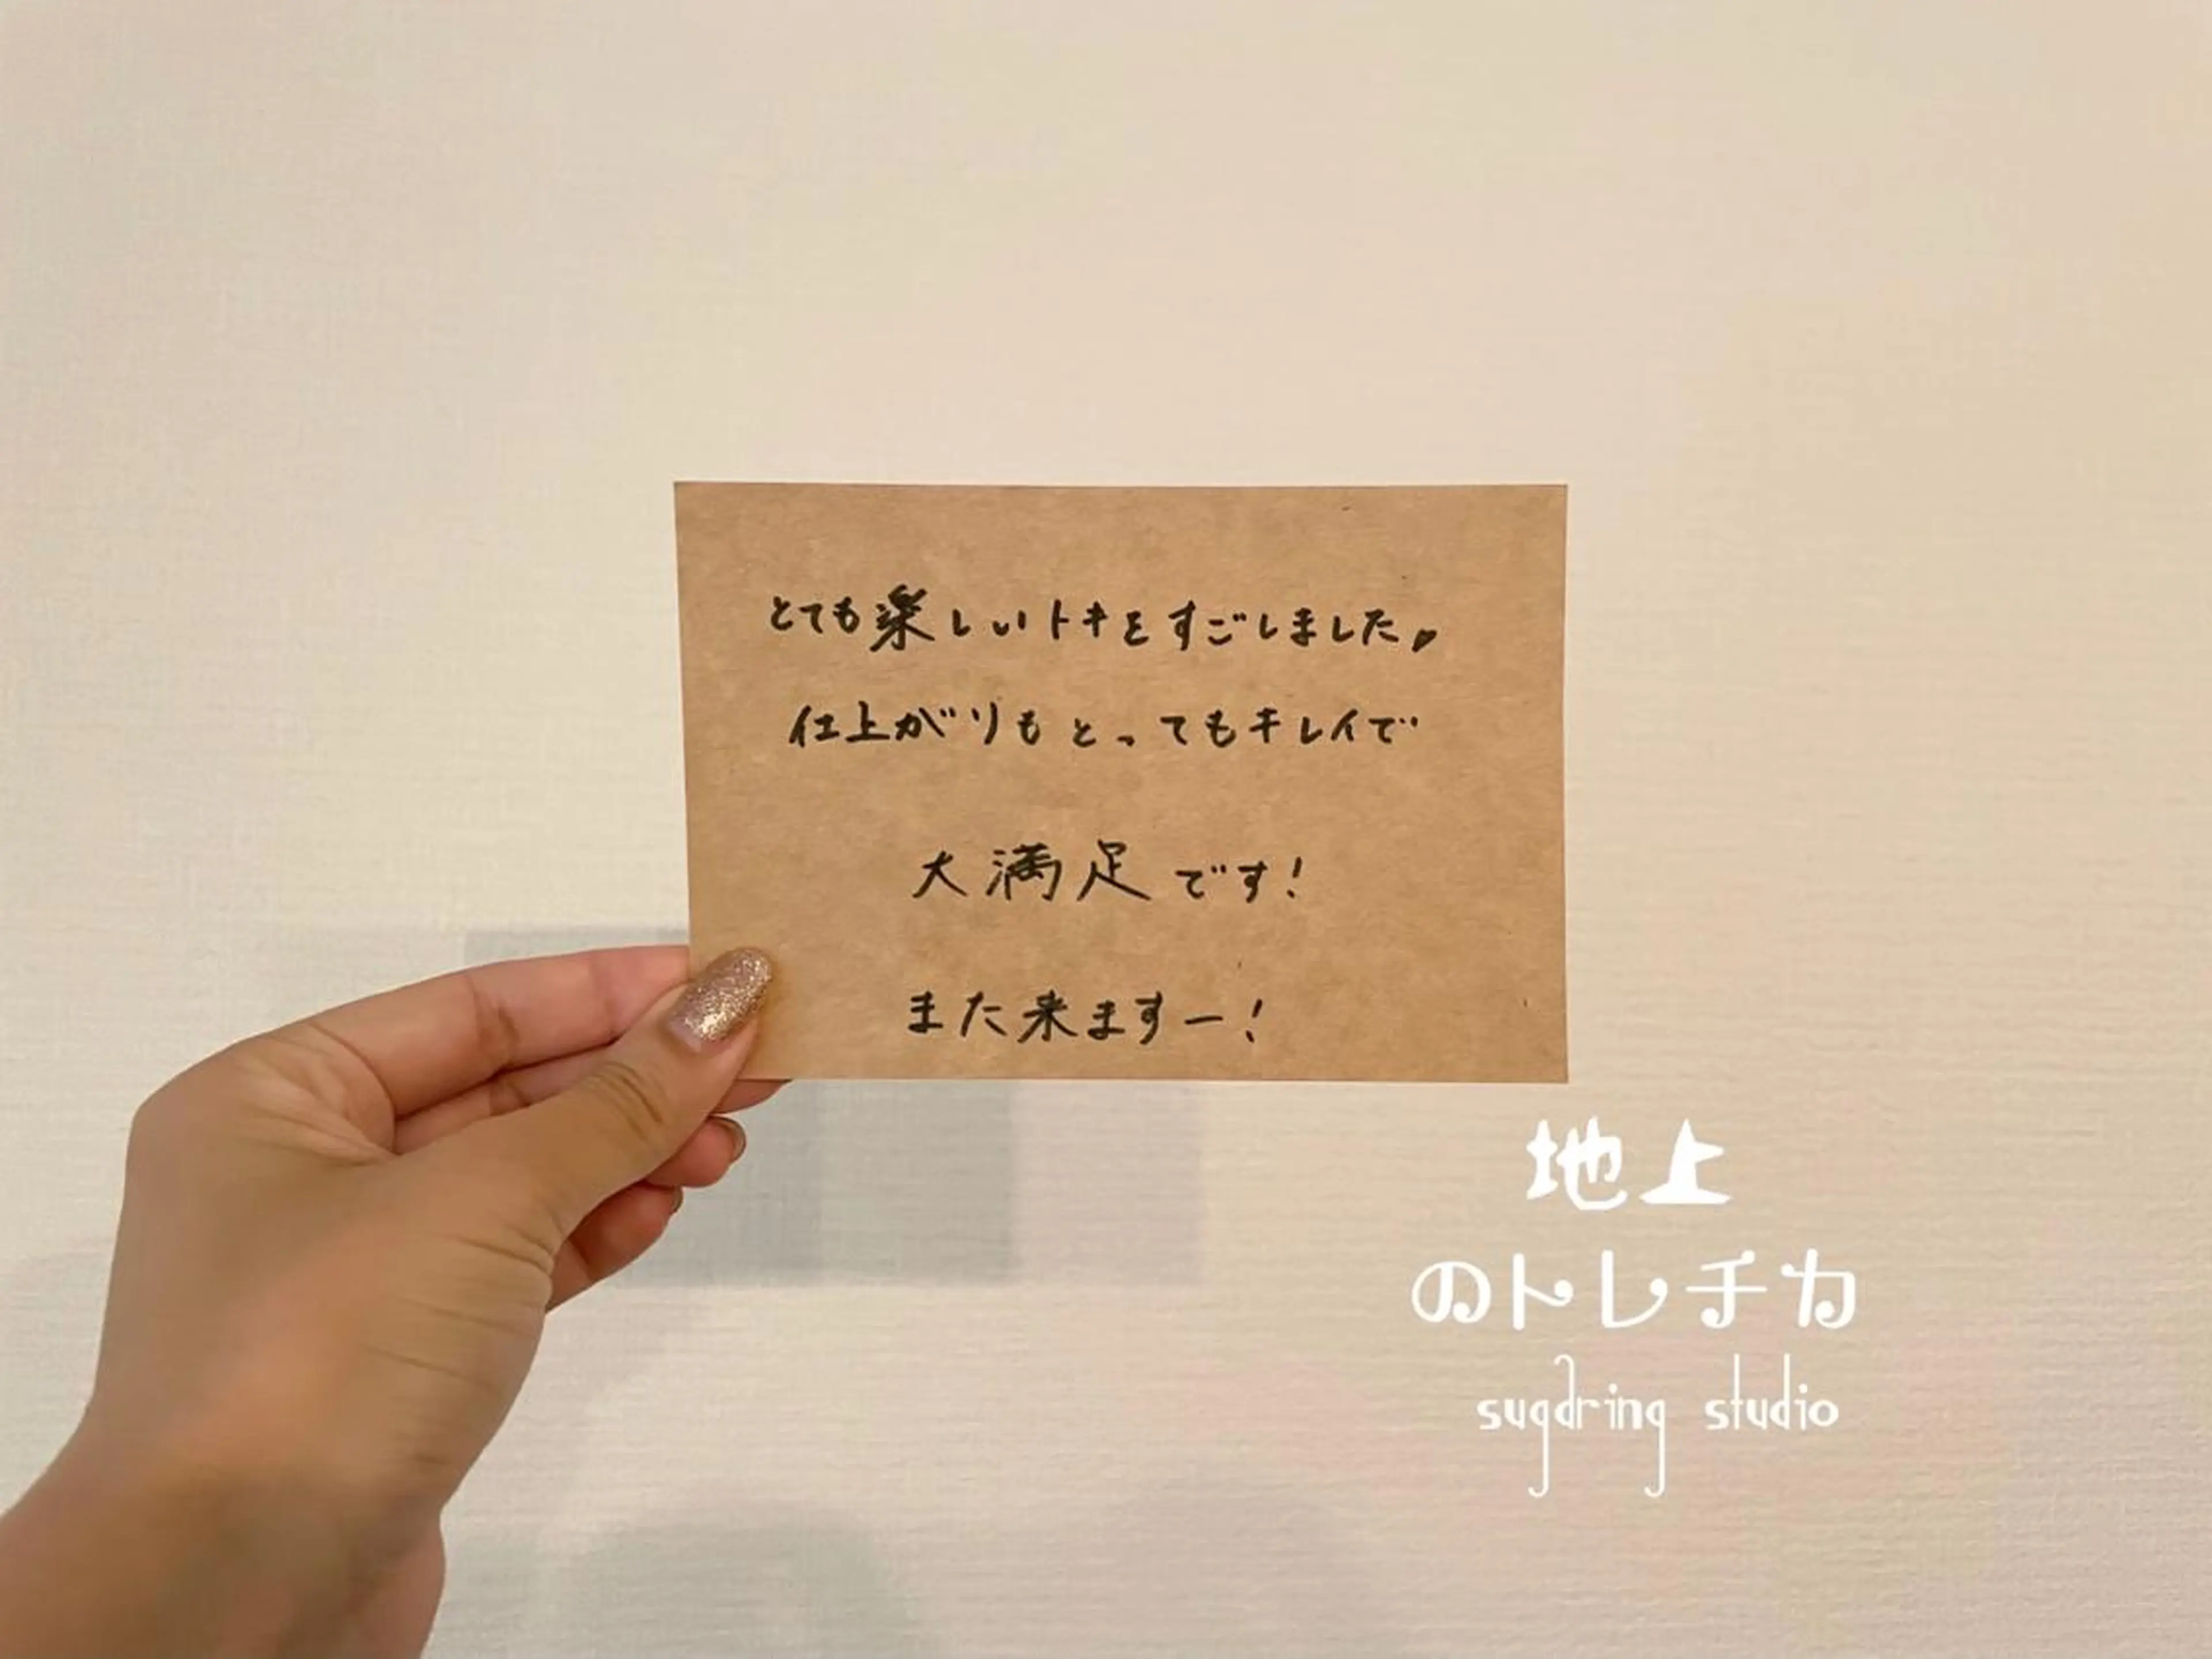 とても楽しいトキをすごしました♥
仕上がりもとってもキレイで
大満足です!
また来ますー!
地上
のトレチカ
sugdring studio